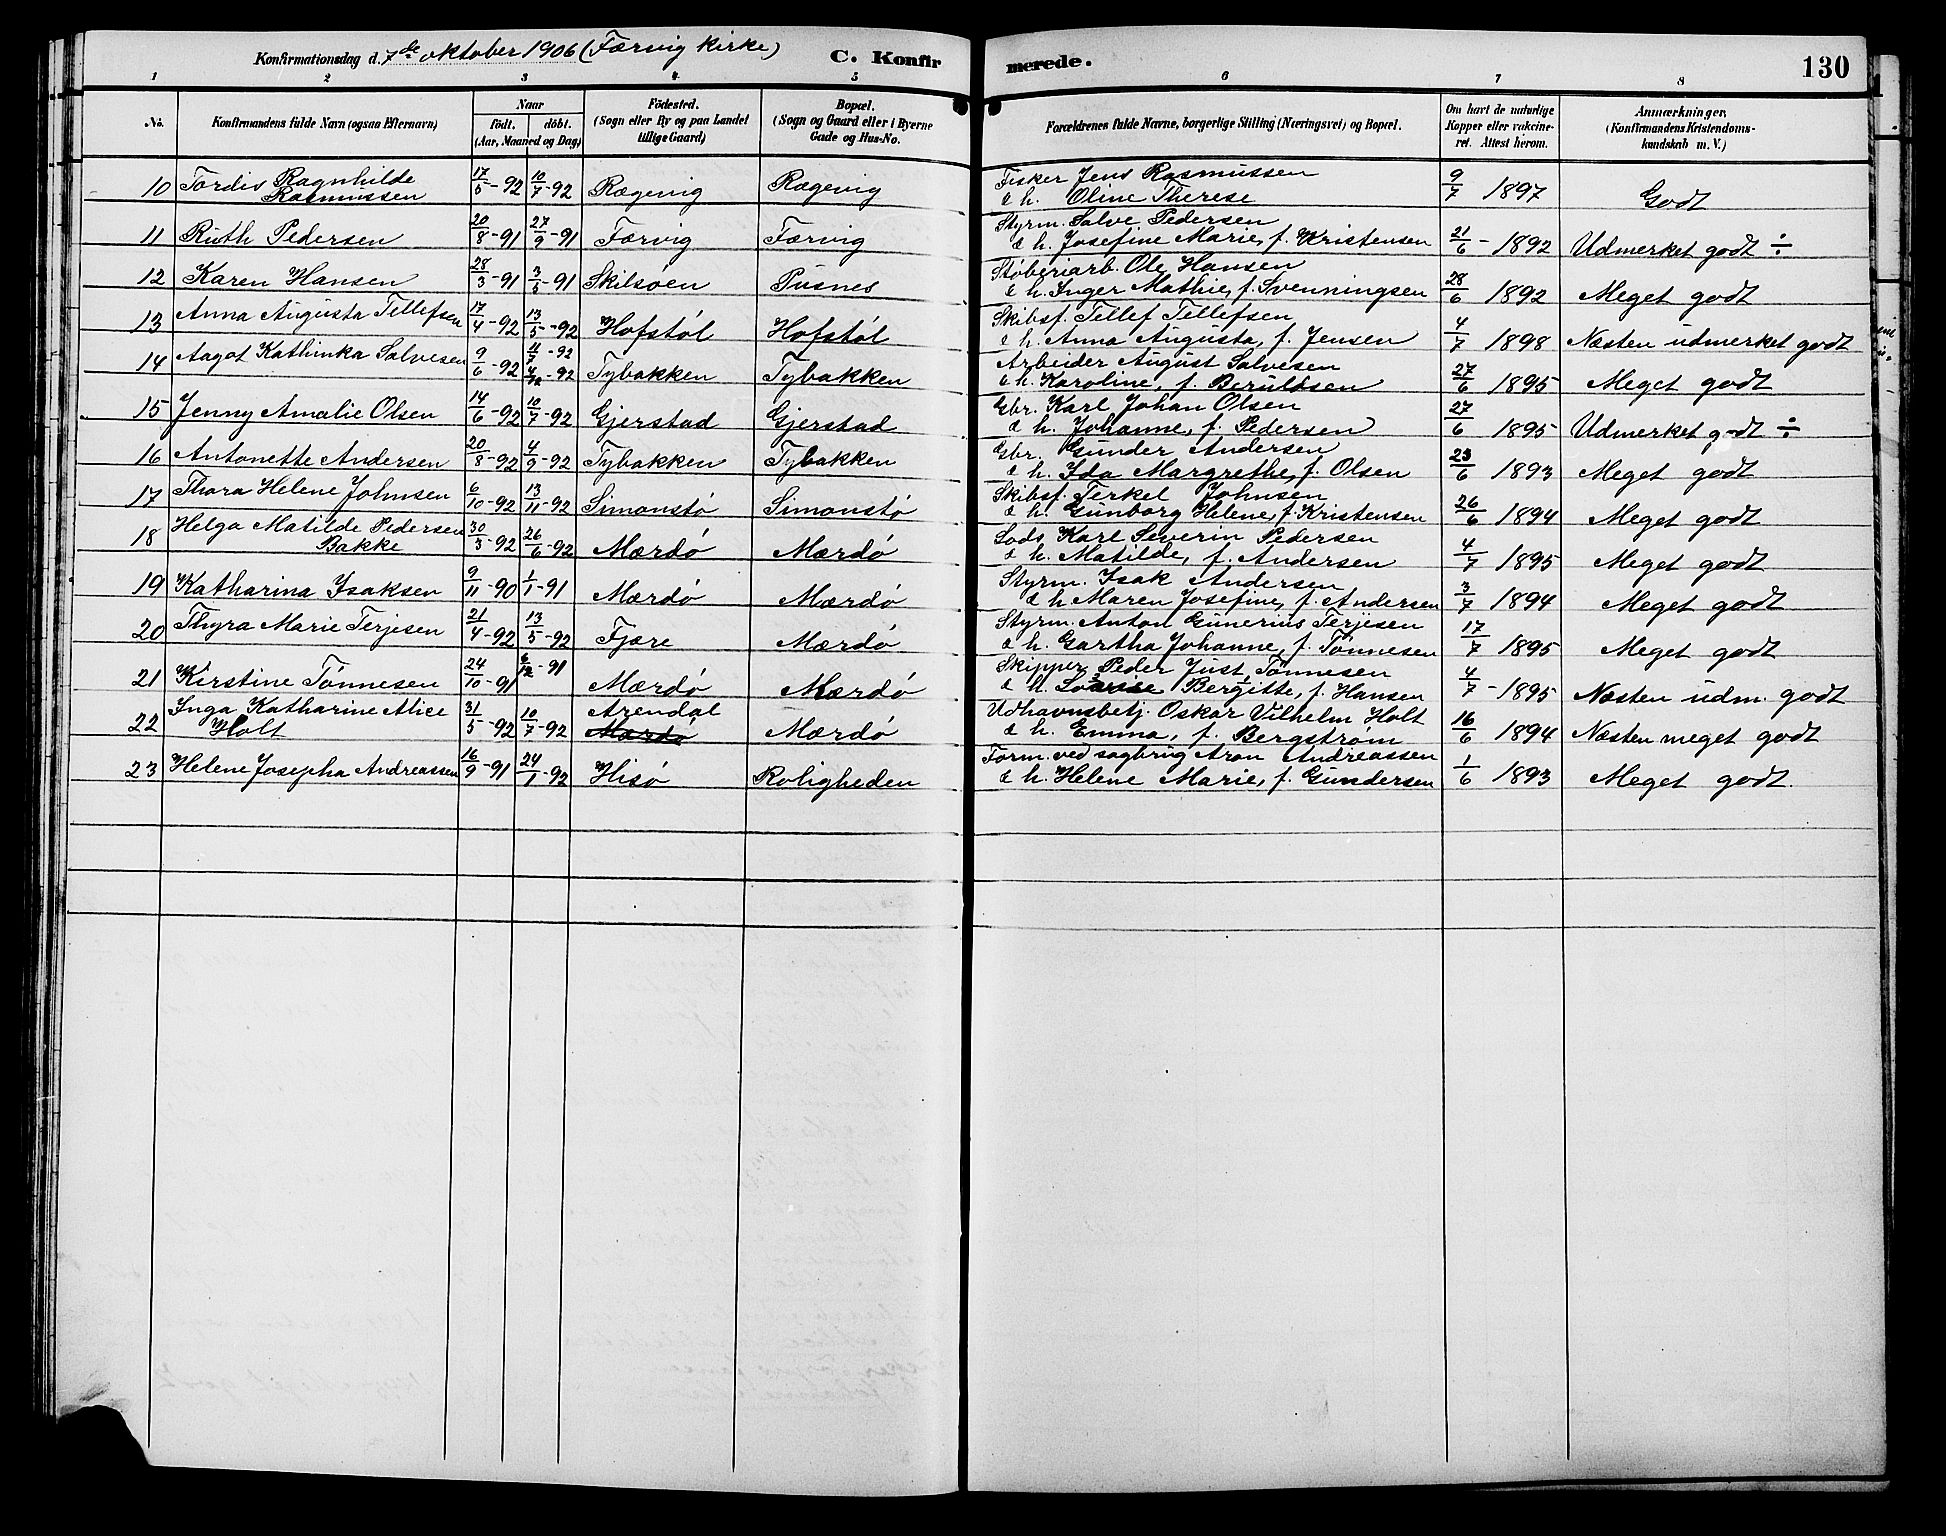 Konfirmationsdag d. 7de oktober 1906 (Færvig kirke) C. Konfirmerede. 130
1 2 3 4 5 6 7 8
No. Konfirmandens fulde Navn (ogsaa Efternavn) Naar födt. döbt. (Aar, Maaned og Dag) Födested. (Sogn eller By og paa Landet tillige Gaard) Bopæl. (Sogn og Gaard eller i Byerne Gade og Hus-No. Forældrenes fulde Navne, borgerlige Stilling (Næringsvei) og Bopæl. Om havt de naturlige Kopper eller vakcineret. Attest herom. Anmærkninger, (Konfirmandens Kristendomskundskab m. V.)
10 Tordis Ragnhilde Rasmussen 17/5-92 10/7-92 Rægevig Rægevig Fisker Jens Rasmussen
& h. Oline Therese 9/7 1897 Godt
11 Ruth Pedersen 20/8-91 27/9-91 Færvig Færvig Styrm. Salve Pedersen
& h. Josefine Marie, f. Kristensen 21/6-1892 Udmerket godt ÷
12 Karen Hansen 28/3-91 3/5-91 Skilsøen Pusnes Støberiarb. Ole Hansen
& h. Inger Mathie, f. Svenningsen 28/6 1892 Meget godt
13 Anna Augusta Tellefsen 17/4-92 13/5-92 Hofstøl Hofstøl Skibsf. Tellef Tellefsen
& h. Anna Augusta, f. Jensen 4/7 1898 Næsten udmerket godt
14 Aagot Kathinka Salvesen 9/6-92 11/7-92 4/12-92 Tybakken Tybakken Arbeider August Salvesen
& h. Karoline, f. Berulvsen 27/6 1895 Meget godt
15 Jenny Amalie Olsen 14/6-92 10/7-92 Gjerstad Gjerstad Gbr. Karl Johan Olsen
& h. Johanne, f. Pedersen 27/6 1895 Udmerket godt ÷
16 Antonette Andersen 20/8-92 4/9-92 Tybakken Tybakken Gbr. Gunder Andersen
& h. Ida Margrethe, f. Olsen 23/6 1893 Meget godt
17 Thora Helene Johnsen 6/10-92 13/11-92 Simonstø Simonstø Skibsf. Terkel Johnsen
& h. Gunborg Helene, f. Kristensen 26/6 1894 Meget godt
18 Helga Matilde Pedersen Bakke 30/3-92 26/6-92 Mærdø Mærdø Lods Karl Severin Pedersen
& h. Matilde, f. Andersen 4/7 1895 Meget godt
19 Katharina Isaksen 9/11-90 1/1-91 Mærdø Mærdø Styrm. Isak Andersen
& h Maren Josefine, f. Andersen 3/7 1894 Meget godt
20 Thyra Marie Terjesen 21/4-92 13/5-92 Fjære Mærdø Styrm. Anton Gunerius Terjesen
& h. Gartha Johanne, f. Tønnesen 17/7 1895 Meget godt
21 Kirstine Tønnesen 24/10-91 6/12-91 Mærdø Mærdø Skipper Peder Just Tønnesen
& h. Lovise Bergitte, f. Hansen 4/7-1895 Næsten udm. godt
22 Inga Katharine Alice Holt 31/5-92 10/7-92 Arendal Mærdø Mærdø Udhavnsbetj. Oskar Vilhelm Holt
& h. Emma, f. Bergstrøm 16/6 1894 Næsten meget godt
23 Helene Josepha Andreassen 16/9-91 24/1-92 Hisø Roligheden Form. ved sagbrug Aron Andreassen
& h. Helene Marie, f. Gundersen 1/6 1893 Meget godt.